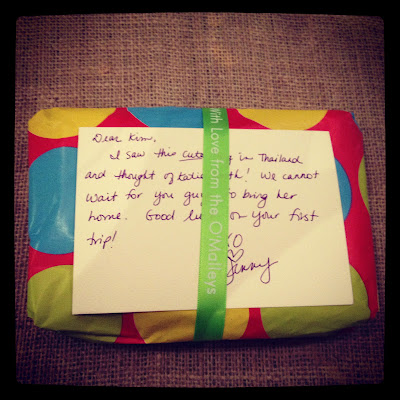 Dear Kim,
I saw this cute in Thailand
and thought of! We cannot
wait for you to bring her
home. Good on your first
trip!
XO
Jenny
With Love from the O'Malleys